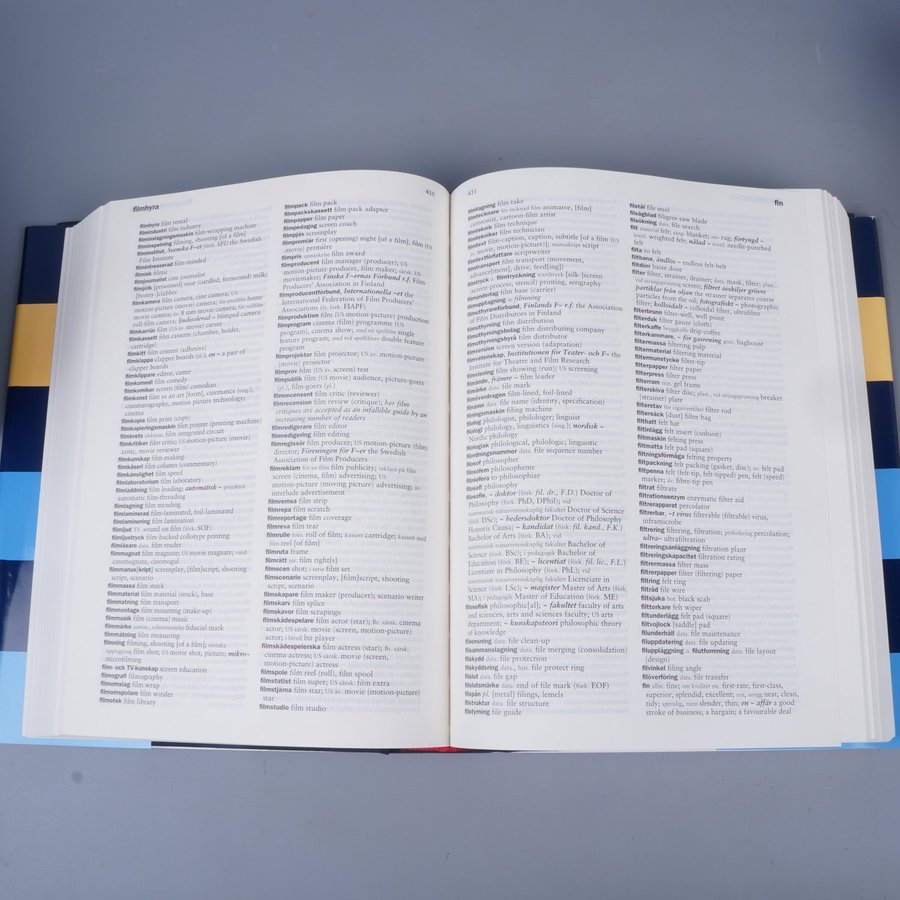 filmhyra
410
filmhyra film rental
filmindustri film industry
filminslagningsmaskin film wrapping machine
filminspelning filming, shooting [of a film]
filminstitut, Svenska F-et (förk. SFI) the Swedish
Film Institute
filmintresserad film-minded
filmisk filmic
filmjournalist cine journalist
filmjölk [processed] sour (curdled; fermented) milk;
[bonny-]clabber
filmkamera film camera, cine camera; US
filmkarriär film (US movie) career
filmkassett film cassette (chamber, holder,
cartridge)
filmkitt film cement (adhesive)
filmklappa clapper boards (pl.); en ~ a pair of
clapper boards
filmklippare editor, cutter
filmkomedi film comedy
filmkomiker screen (film) comedian
filmkonst film as an art [form], cinematics (sing.),
cinematography, motion picture technology;
cinema
filmkopia film print (copy)
filmkopieringsmaskin film printer (printing machine)
filmkritiker film critic; US motion-picture (movie)
critic, movie reviewer
filmkunskap film-making
filmkåseri film column (commentary)
filmkänslighet film speed
filmlaboratorium film laboratory
filmladdning film loading; automatisk ~
automatic film-threading
filmlagning film mending
filmlaminerad film-laminated, foil-laminated
filmlaminering film lamination
filmljud TV. sound on film (förk. SOF)
filmljustryck film-backed collotype printing
filmläsare data. film reader
filmmagnat film magnate; US movie magnate; vard.
cinemagnate, cinemogul
filmmanus[kript] screenplay, [film]script, shooting
script, scenario
filmmassa film stock
filmmaterial film material (stock), base
filmmatning film transport
filmmontage film mounting (make-up)
filmmusik film (cinema) music
filmmärke fiducial mark
filmmätning film measuring
filmning filming, shooting [of a film]; enstaka
upptagning film shot; US movie shot, picture; mikro~
microfilming
film- och TV-kunskap screen education
filmografi filmography
filmomslag film wrap
filmomspolare film winder
filmotek film library
filmpack film pack
filmpackskassett film-pack adapter
filmpapper film paper
filmpedagog screen coach
filmpjäs screenplay
filmpremiär first (opening) night [of a film], film (US
movie) première
filmpris film award
filmproducent film manager (producer); US
motion-picture producer, film maker; US
moviemaker; Finska F-ernas Förbund r.f. Film
Producers' Association in Finland
filmproducentförbund, Internationella ~et the
International Federation of Film Producers'
Associations (förk. FIAPF)
filmproduktion film (US motion-picture) production
filmprogram cinema (film) programme (US
program), cinema show; med en spelfilm single
feature program; med två spelfilmer double feature
program
filmprojektor film projector; US motion-picture
(movie) projector
filmprov film (US screen) test
filmpublik film (US movie) audience, picture-goers
(pl.), film-goers (pl.)
filmrecensent film critic (reviewer)
filmrecension film review (critique); her film
critiques are accepted as an infallible guide by an
increasing number of readers
filmredigerare film editor
filmredigering film editing
filmregissör film producer; US motion-picture (film)
director; Föreningen för F-er the Swedish
Association of Film Producers
filmreklam för en film film publicity; reklam på film
screen (cinema, film) advertising; US
motion-picture (moving picture) advertising;
interlude advertisement
filmremsa film strip
filmrepa film scratch
filmreportage film coverage
filmreva film tear
filmrulle foto. roll of film; kassett cartridge; kassett med
film reel [of film]
filmruta frame
filmrätt jur. film right[s]
filmscen shot; i serie film set
filmscenario screenplay, [film]script, shooting
script, scenario
filmskapare film maker (producer); scenario writer
filmskarv film splice
filmskavor film scrapings
filmskådespelare film actor (star); Br. cinema
actor; US särsk. movie (screen, motion-picture)
actor; i bifall bit player
filmskådespelerska film actress (star); Br.
cinema actress; US särsk. movie (screen,
motion-picture) actress
filmspole film reel (roll), film spool
filmstatist film super; US särsk. film extra
filmstjärna film star; US av. movie (motion-picture)
star
filmstudio film studio
411
fin
filmtagning film take
filmtecknare för tecknad film animator, [film]
cartoonist, cartoon-film artist
filmteknik film technique
filmtekniker film technician
filmtext film-caption, caption, subtitle [of a film (US
movie, motion-picture)]; manuskript script
filmtextförfattare scriptwriter
filmtransport film transport (movement,
advance[ment], drive, feed[ing])
filmtryck filmtryckning textiltryck [silk-]screen
process, stencil) printing, serigraphy
filmunderlag film base (carrier)
filmupptagning filmning
filmuthyrareförbund, Finlands F~ r.f. the Association
of Film Distributors in Finland
filmuthyrning film distribution
filmuthyrningsbolag film distributing company
filmuthyrningsbyrå film distributor
filmversion screen version (adaptation)
filmvetenskap, Institutionen för Teater- och F~ the
Institute for Theatre and Film Research
filmvisning film showing (run); US screening
filmände, främre ~ film leader
filmärke data. file mark
filmöverdragen film-lined, foil-lined
filnamn data. file name (identity, specification)
filningsmaskin filing machine
filolog philologist, philologer, linguist
filologi philology, linguistics (sing.); nordisk ~
Nordic philology
filologisk philological, philologic, linguistic
filordningsnummer data. file sequence number
filosof philosopher
filosofem philosopheme
filosofera to philosophize
filosofi philosophy
filosofie, ~ doktor (förk. fil. dr., F.D.) Doctor of
Philosophy (förk. PhD, DPhil); vid
matematisk-naturvetenskaplig fakultet Doctor of Science
(förk. DSc); ~ hedersdoktor Doctor of Philosophy
Honoris Causa; ~ kandidat (förk. fil. kand., F.K.)
Bachelor of Arts (förk. BA); vid
matematisk-naturvetenskaplig fakultet Bachelor of
Science (förk. BSc); i pedagogik Bachelor of
Education (förk. BE); ~ licentiat (förk. fil. lic., F.L.)
Licentiate in Philosophy (förk. PhL); vid
matematisk-naturvetenskaplig fakultet Licenciate in
Science (förk. LSc); ~ magister Master of Arts (förk.
MA); i pedagogik Master of Education (förk. ME)
filosofisk philosophic[al]; ~ fakultet faculty of arts
and sciences, arts and sciences faculty; US arts
department; ~ kunskapsteori philosophic theory
of knowledge
filrensning data. file clean-up
filsammanslagning data. file merging (consolidation)
filskydd data. file protection
filskyddsring data. file protect ring
filslut data. file gap
filslutsmärke data. end of file mark (förk. EOF)
filspån pl. [metal] filings, lemels
filstruktur data. file structure
filstyrning file guide
filstål file steel
filsågblad filigree-saw blade
filsökning data. file search
filt material felt; säng- blanket; rug; förtyngd ~
weighted felt; nålad ~ needle-punched
felt
filta to felt
filtbana, ändlös ~ endless felt-belt
filtdörr baize door
filter filter, strainer, drainer; data. mask, filter;
screen; filtret avskiljer grövre
partiklar från oljan the strainer separates coarse
particles from the oil; fotografiskt ~ photographic
filter; kolloidalt ~ colloidal filter, ultrafilter
filterbrunn filter-well, well point
filterduk filter gauze (cloth)
filterkaffe drip coffee
filterkammare, ~ för gasrening baghouse
filtermassa filtering pulp
filtermaterial filtering material
filtermunstycke filter-tip
filterpapper filter paper
filterpress filter press
filterram gel frame
filterskiva filter disc; vid strängsprutning breaker
(strainer) plate
filterstav för cigarrettfilter filter rod
filtersäck [dust] filter bag
filthatt felt hat
filtinlägg felt insert (cushion)
filtmaskin felting press
filtmatta felt pad (square)
filtningsförmåga felting property
filtpackning felt packing (gasket, disc); sv. felt pad
filtpenna felt-tip, felt-tip[ped] pen, felt (speed)
marker; sv. fibre-tip pen
filtrat filtrate
filtrationsenzym enzymatic filter aid
filtrerapparat percolator
filtrerbar, ~t virus filterable (filtrable) virus,
inframicrobe
filtrering filtering, filtration; perkolering percolation;
ultra~ ultrafiltration
filtreringsanläggning filtration plant
filtreringskapacitet filtration rating
filtrermassa filter mass
filtrerpapper filter (filtering) paper
filtring felt ring
filtråd file wire
filtsjuka bot. black scab
filttorkare felt wiper
filtunderlägg felt pad (square)
filtvojlock [saddle] pad
filunderhåll data. file maintenance
filuppdatering data. file updating
filuppläggning o. filutformning data. file layout
(design)
filvinkel filing angle
filöverföring data. file transfer
fin allm. fine; om kvalitet etc. first-rate, first-class,
superior, splendid, excellent; ren, snygg neat, clean,
tidy; spenslig, tunn slender, thin; en ~ affär a good
stroke of business; a bargain; a favourable deal